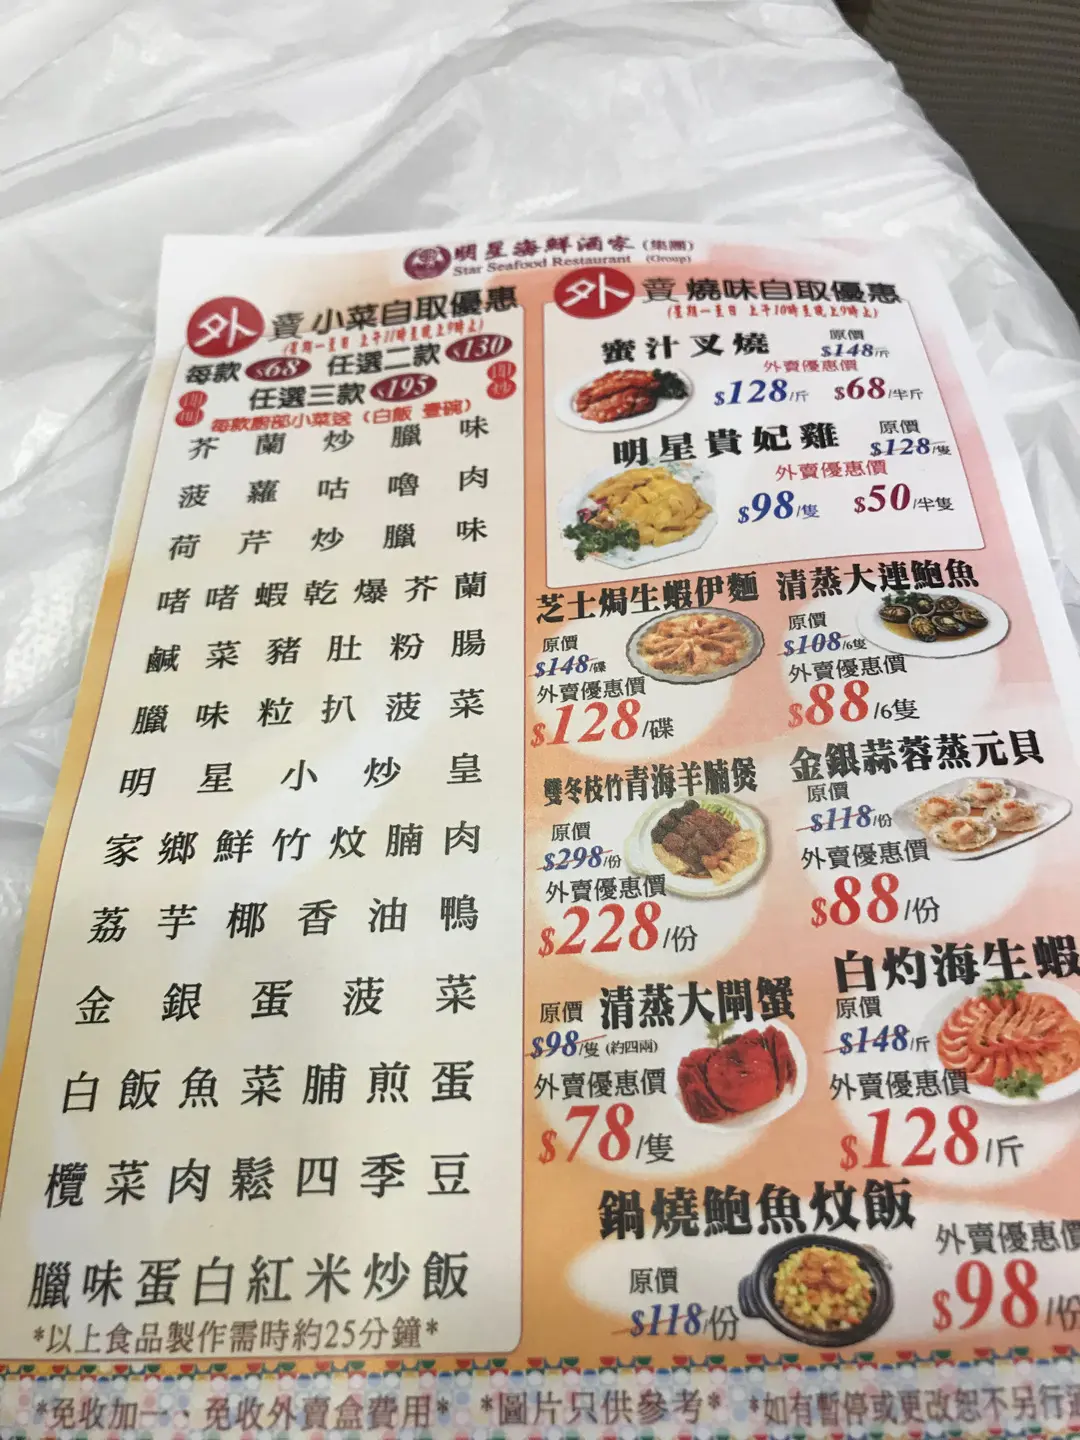 明星海鮮酒家(集團)
Star Seafood Restaurant (Group)
外賣小菜自取優惠
(星期一至日 上午11時至晚上9時止)
每款 $68 任選二款 $130
任選三款 $195
每款廚部小菜送(白飯 壹碗)
芥蘭炒臘味
菠蘿咕嚕肉
荷芹炒臘味
啫啫蝦乾爆芥蘭
鹹菜豬肚粉腸
臘味粒扒菠菜
明星小炒皇
家鄉鮮竹炆腩肉
荔芋椰香油鴨
金銀蛋菠菜
白飯魚菜脯煎蛋
欖菜肉鬆四季豆
臘味蛋白紅米炒飯
*以上食品製作需時約25分鐘*
外賣燒味自取優惠
(星期一至日 上午10時至晚上9時止)
蜜汁叉燒
原價
$148/斤
外賣優惠價
$128/斤 $68/半斤
明星貴妃雞
原價
$128/隻
外賣優惠價
$98/隻 $50/半隻
芝士焗生蝦伊麵
原價
$148/碟
外賣優惠價
$128/碟
清蒸大連鮑魚
原價
$108/6隻
外賣優惠價
$88/6隻
雙冬枝竹青海羊腩煲
原價
$298/份
外賣優惠價
$228/份
金銀蒜蓉蒸元貝
原價
$118/份
外賣優惠價
$88/份
清蒸大閘蟹
原價
$98/隻 (約四兩)
外賣優惠價
$78/隻
白灼海生蝦
原價
$148/斤
外賣優惠價
$128/斤
鍋燒鮑魚炆飯
原價
$118/份
外賣優惠價
$98/份
*免收加一、免收外賣盒費用* *圖片只供參考* *如有暫停或更改恕不另行